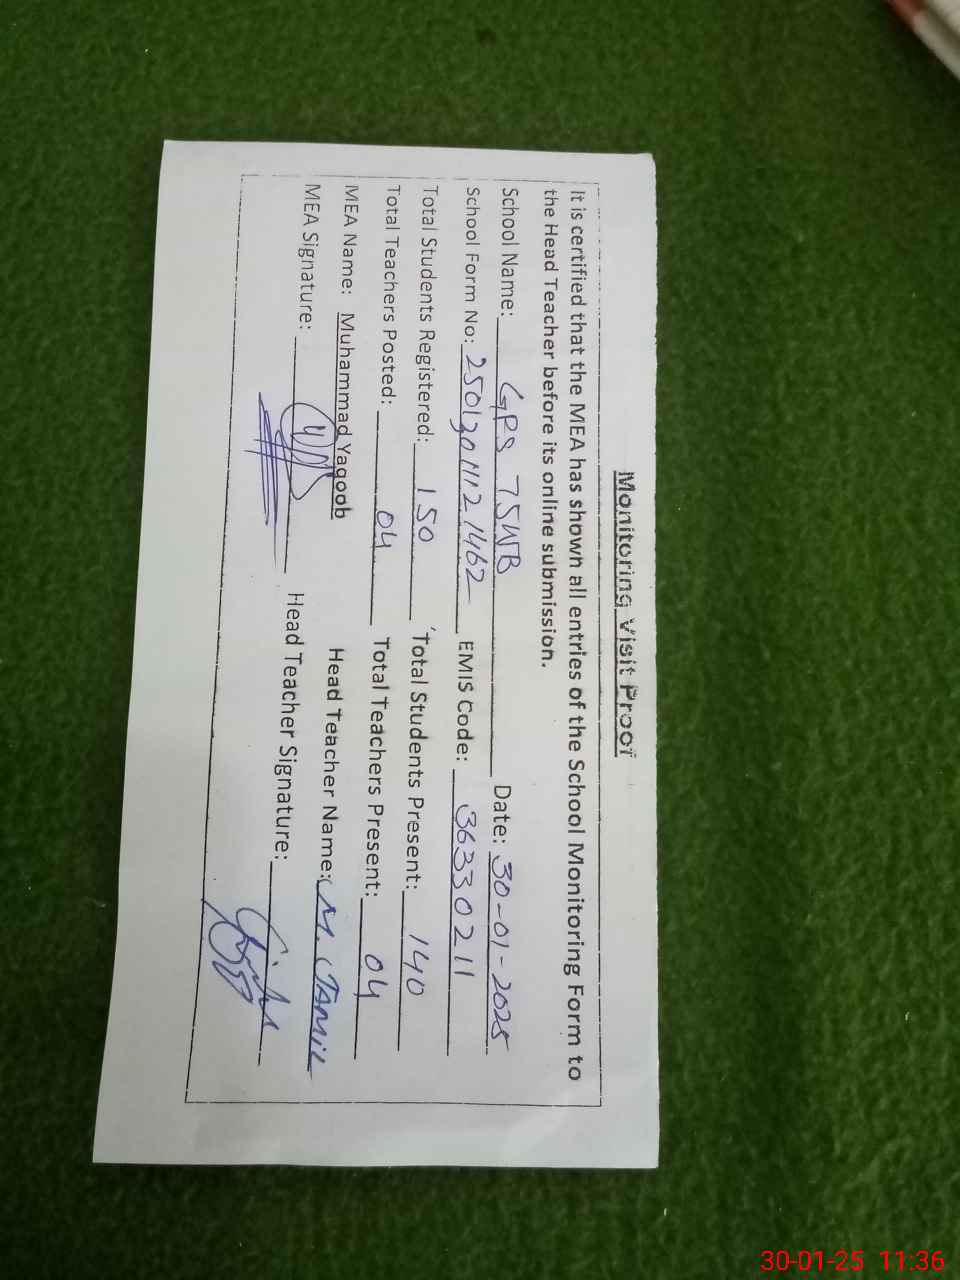 Monitoring Visit Proof
It is certified that the MEA has shown all entries of the School Monitoring Form to
the Head Teacher before its online submission.
School Name: GPS 75WB Date: 30-01-2025
School Form No: 2501301112 1462 EMIS Code: 36330211
Total Students Registered: 150 Total Students Present: 140
Total Teachers Posted: 04 Total Teachers Present: 04
MEA Name: Muhammad Yaqoob Head Teacher Name: M. JAMIL
MEA Signature: Head Teacher Signature:
30-01-25 11:36